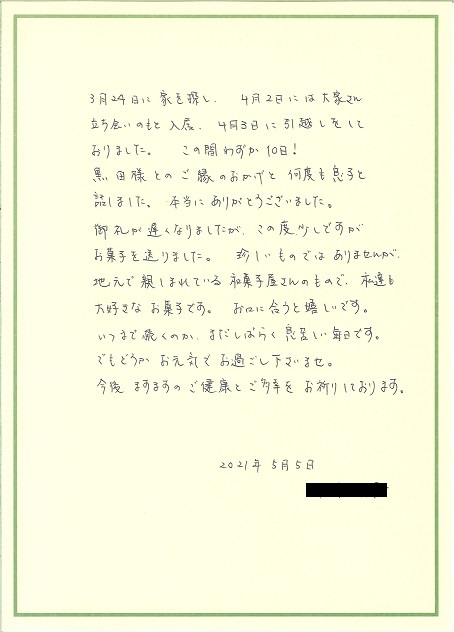 3月24日に 家を探し、 4月2日には大家さん
立ち会いのもと 入居、 4月3日に引越しをして
おりました。 この間わずか10日！
黒田様とのご縁のおかげと 何度も息子と
話しました、 本当にありがとうございました。
御礼が遅くなりましたが、この度少しですが
お菓子を送りました。 珍しいものではありませんが、
地元で親しまれている 和菓子屋さんのもので、私達も
大好きな お菓子です。 お口に合うと嬉しいです。
いつまで続くのか、まだしばらく 息苦しい毎日です。
でもどうか お元気で お過ごし下さいませ。
今後 ますますの ご健康と ご多幸を お祈りしております。
2021年 5月5日